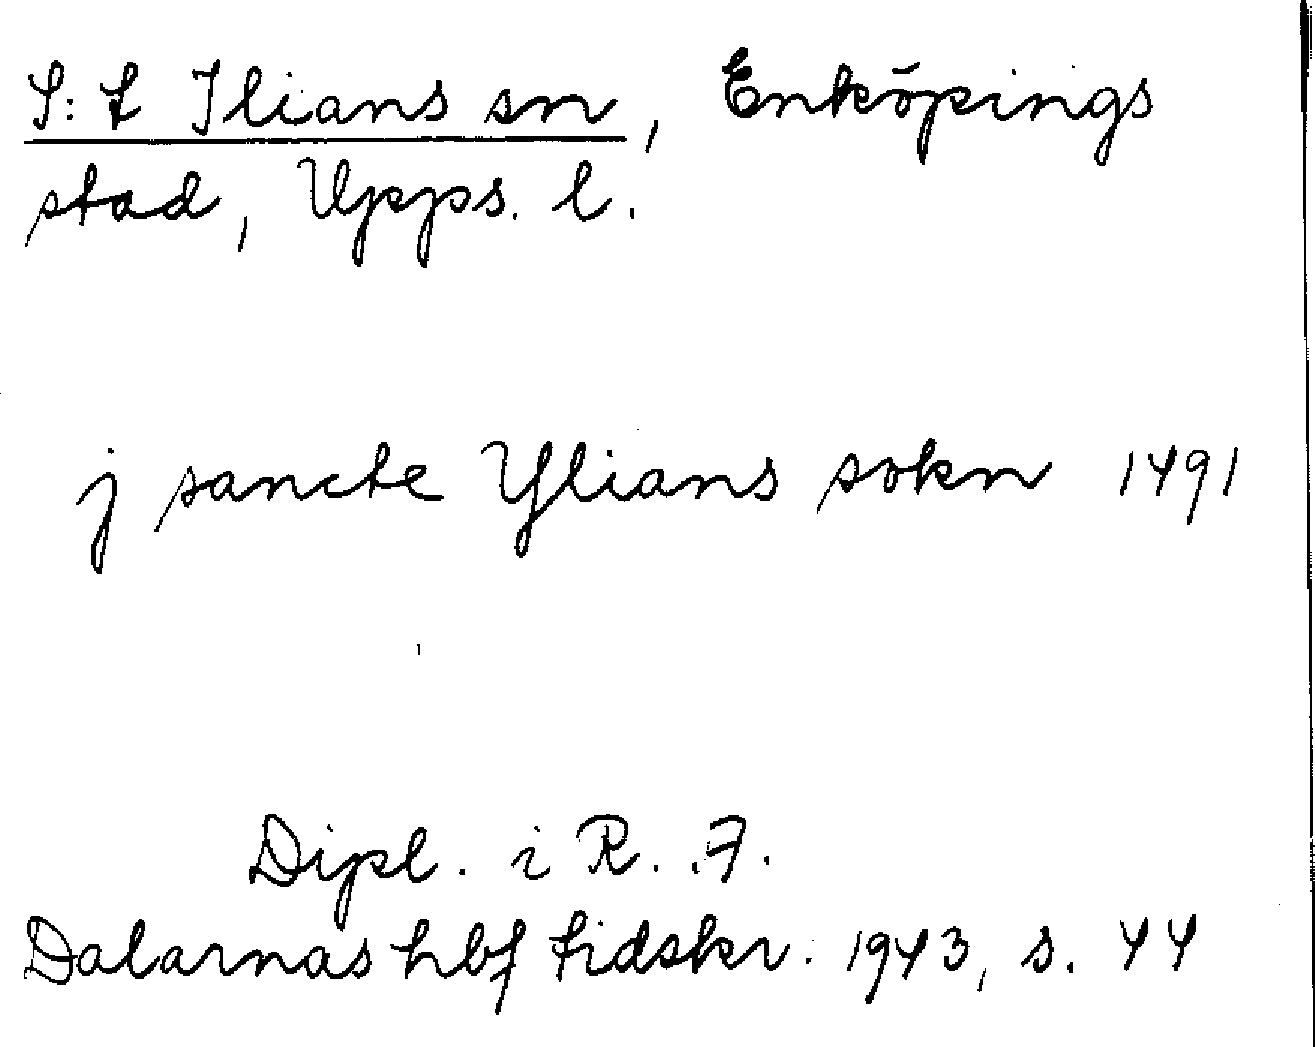 S:t Ilians sn, Enköpings
stad, Upps. l.
j sancte Ylians sokn 1491
Dipl. i R. A.
Dalarnas hbf tidskr. 1943, s. 44